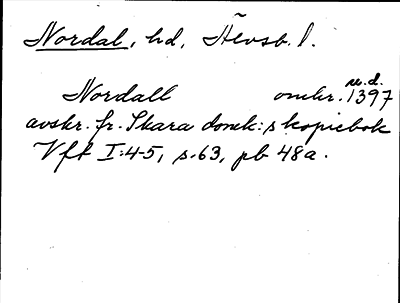 Nordal, hd, Älvsb. l.
u. d.
Nordall omkr. 1397
avskr. fr. Skara domk:s kopiebok
Vft I:4-5, s. 63, pb 48a.